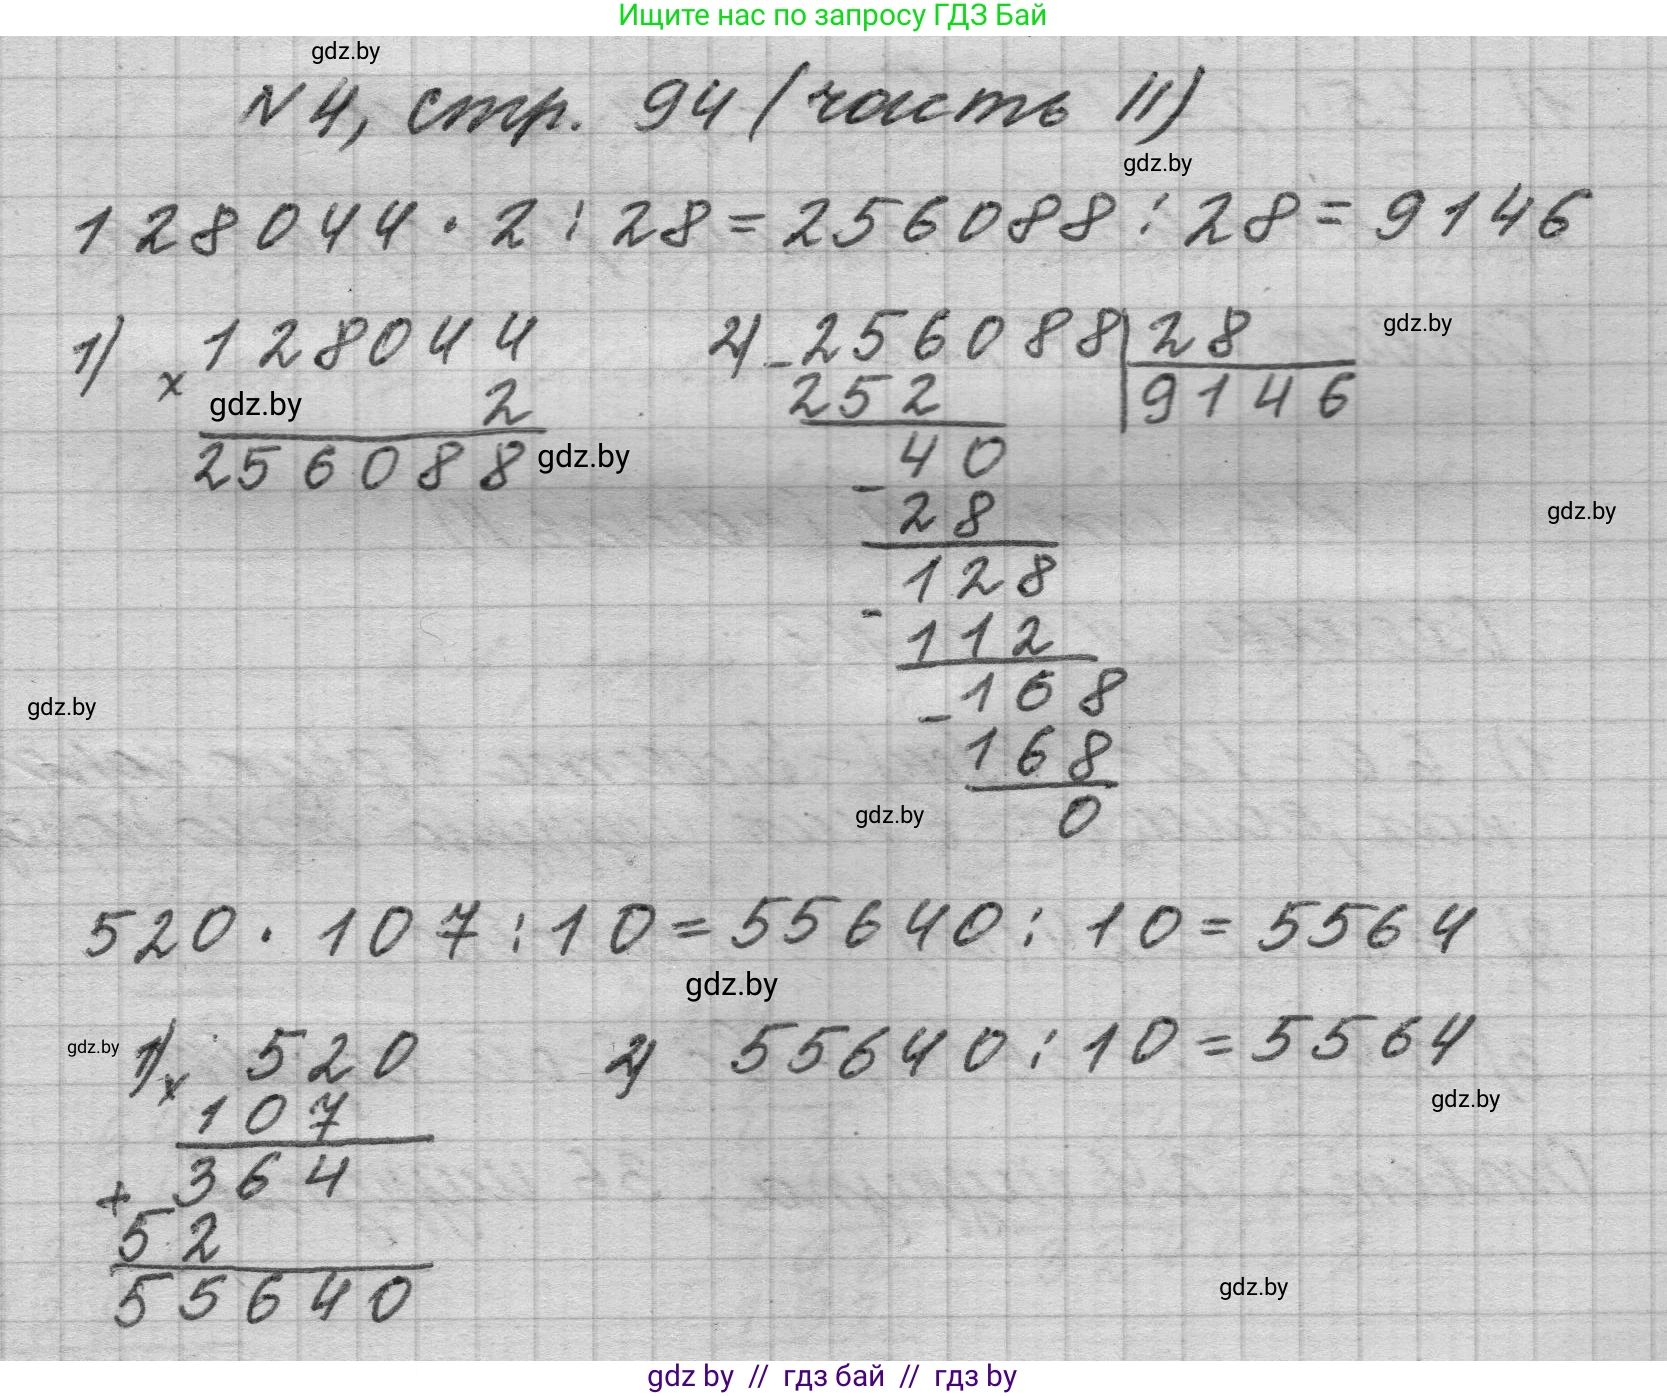 Ищите нас по запросу ГДЗ Бай
gdz.by
N 4, стр. 94 (часть II)
gdz.by
128044 · 2 : 28 = 256088 : 28 = 9146
1) x 128044
gdz.by 2
256088 gdz.by
2) - 256088 | 28
252 9146
gdz.by
- 40
28
gdz.by
- 128
112
- 168
168
0
gdz.by
gdz.by
520 · 107 : 10 = 55640 : 10 = 5564
gdz.by
gdz.by 1) x 520
107
+ 364
52
55640
2) 55640 : 10 = 5564
gdz.by
gdz.by
gdz by // гдз бай // гдз by